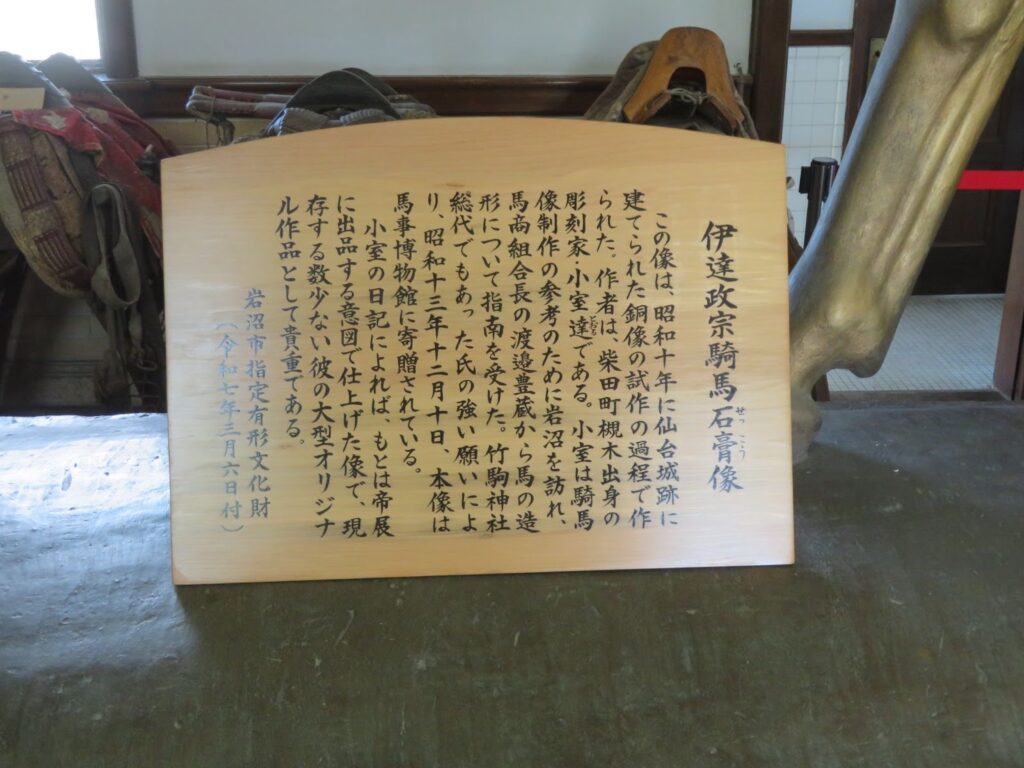 伊達政宗騎馬石膏像
せっこう
この像は、昭和十年に仙台城跡に
建てられた銅像の試作の過程で作
られた。作者は、柴田町槻木出身の
彫刻家・小室達である。小室は騎馬
とおる
像制作の参考のために岩沼を訪れ、
馬商組合長の渡邉豊蔵から馬の造
形について指南を受けた。竹駒神社
総代でもあった氏の強い願いによ
り、昭和十三年十二月十日、本像は
馬事博物館に寄贈されている。
小室の日記によれば、もとは帝展
に出品する意図で仕上げた像で、現
存する数少ない彼の大型オリジナ
ル作品として貴重である。
岩沼市指定有形文化財
（令和七年三月六日付）